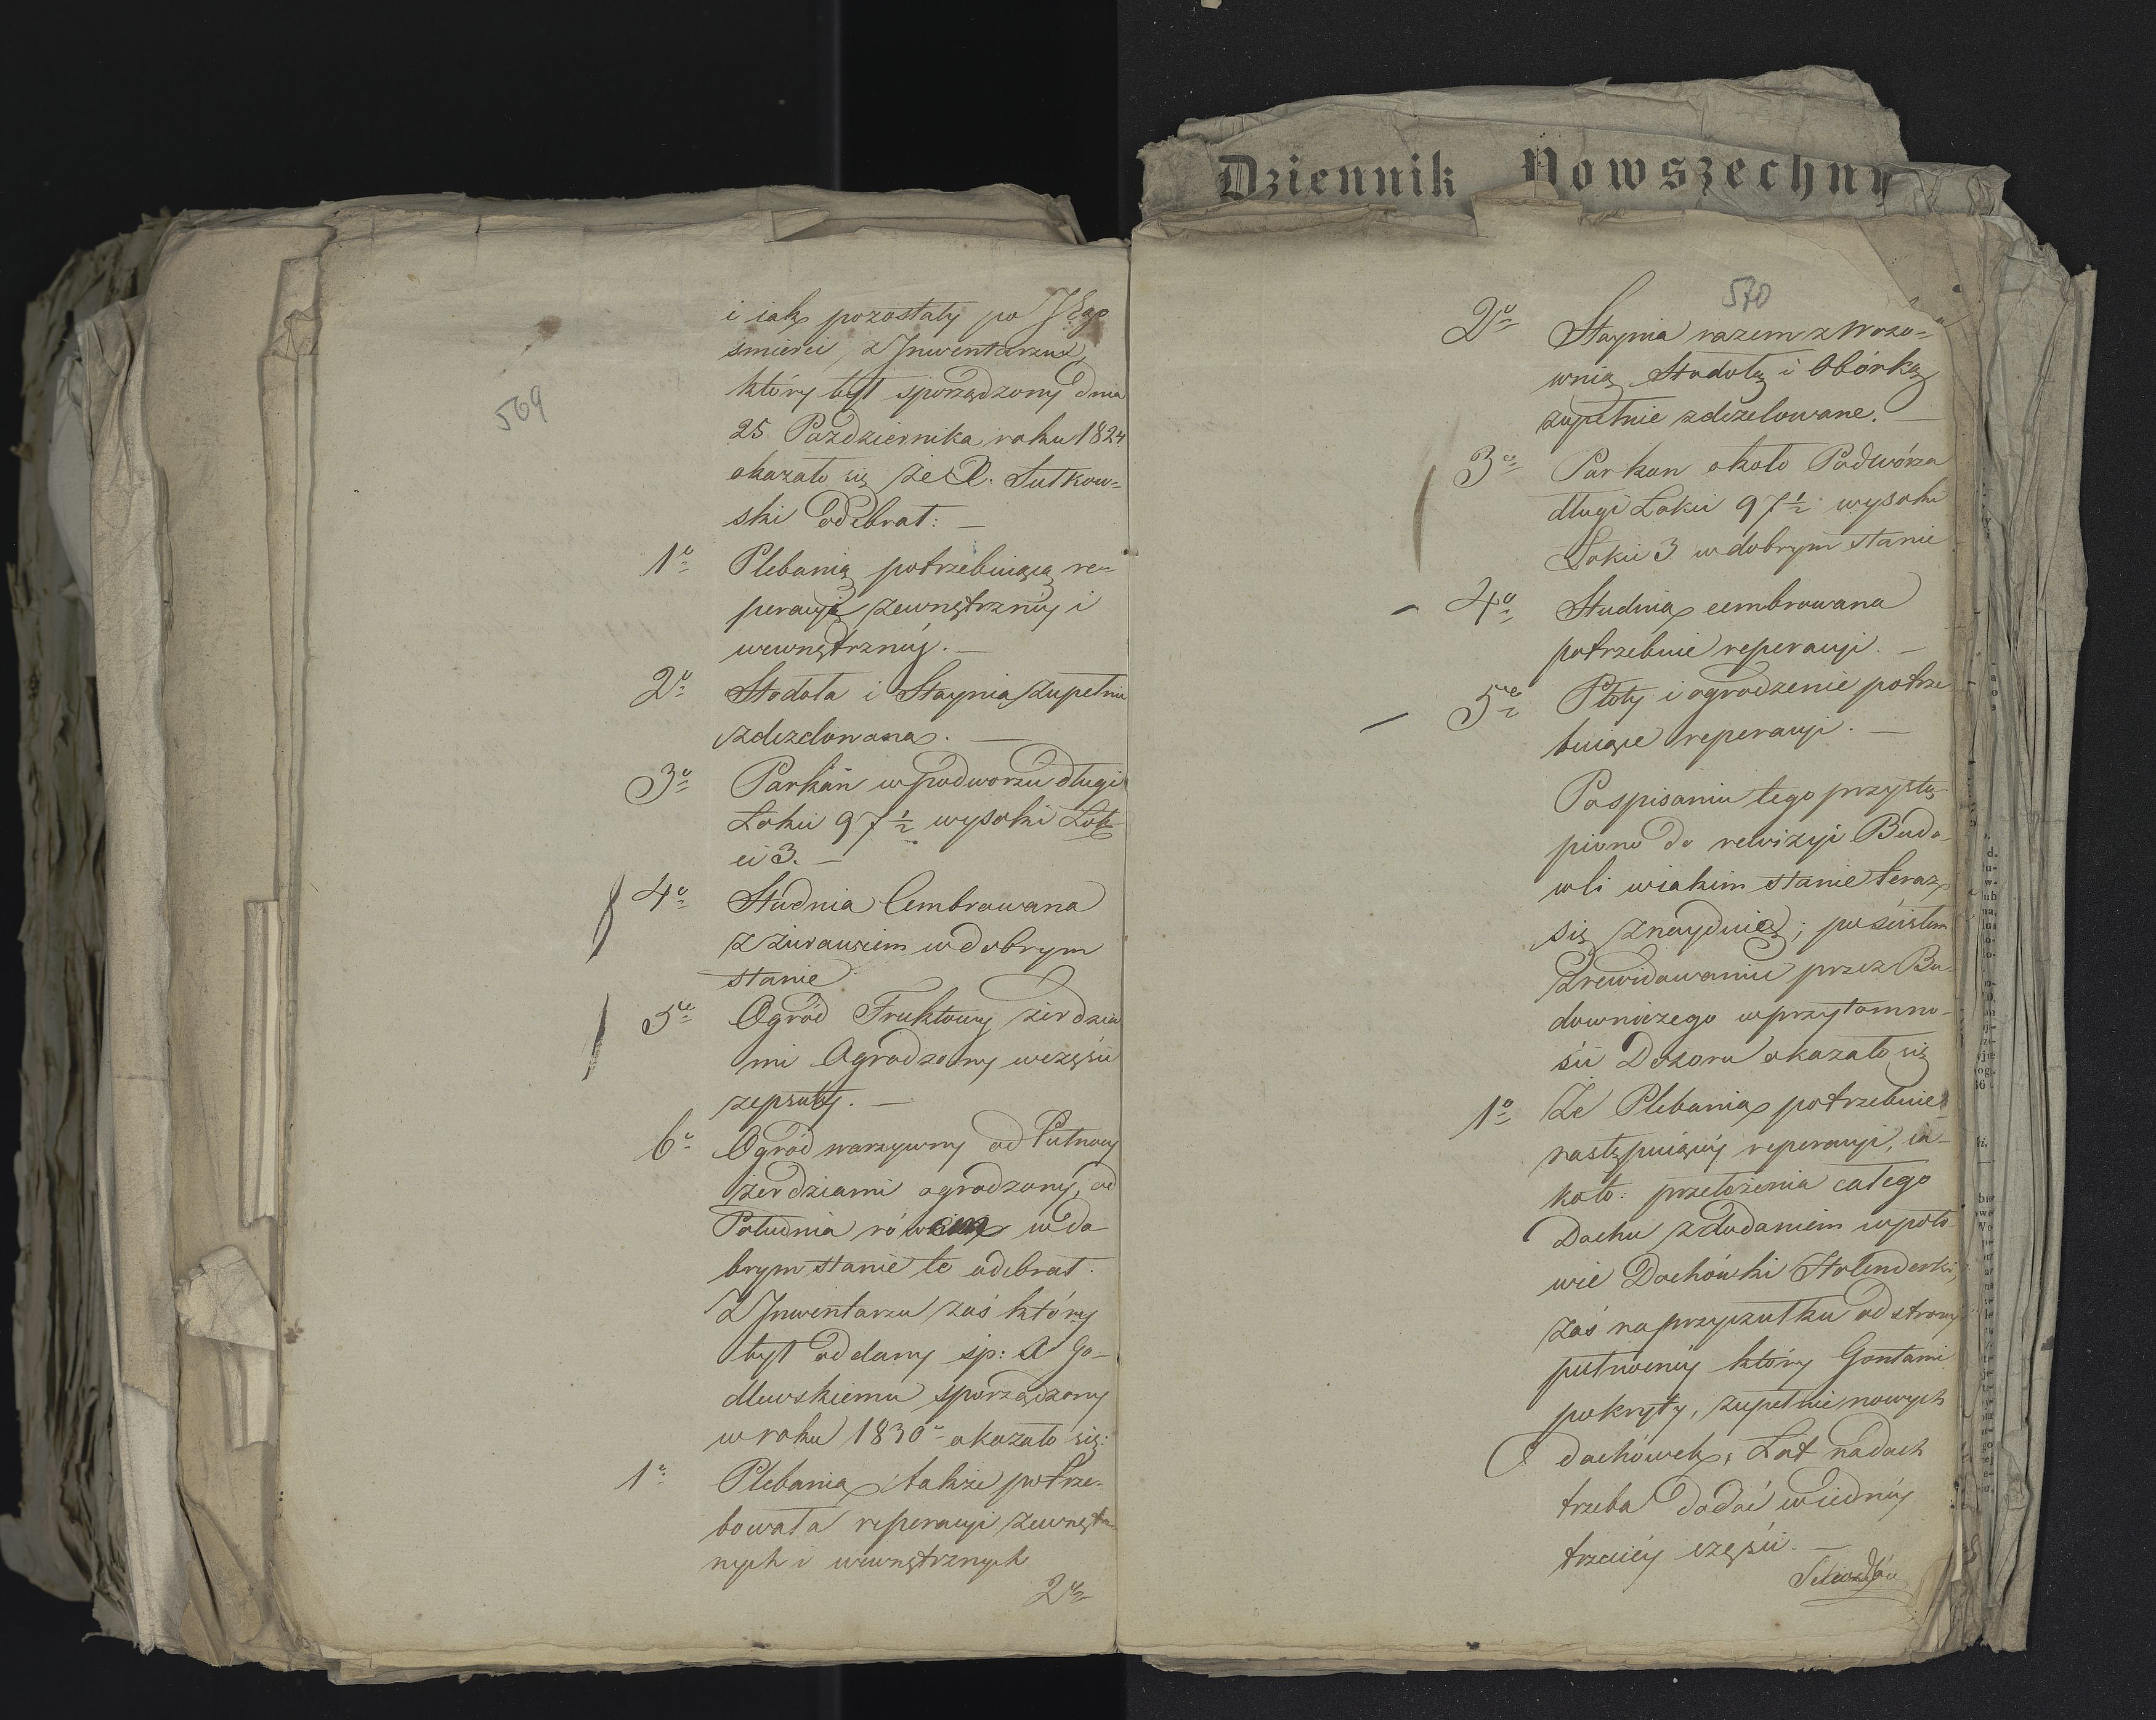 569
i iaki pozostały po JEgo
śmierci, z Inwentarzu
który był sporządzony dnia
25 Października roku 1824
okazało się że X. Sutkow=
ski odebrał: —
1o Plebanią potrzebuiącą re=
peracyi zewnętrzney i
wewnętrzney. —
2o Stodoła i Staynia zupełnie
zdezelowana. —
3o Parkan w podworzu długi
Łokci 97 1/2 wysoki Łok
ci 3. —
4o Studnia Cembrowana
z żurawiem w dobrym
stanie
5o Ogród Fruktowy żerdzia
mi Ogrodzony w części
zepsuty. —
6o Ogród warzywny od Putnocy
żerdziami ogrodzony, od
Południa w do
brym stanie te odebrał.
Z Inwentarzu zaś który
był oddany sp: X Go=
dlewskiemu sporządzony
w roku 1830o okazało się:
1o Plebania także potrze=
bowała reperacyi zewnętrz
nych i wewnętrznych
2o
Dziennik Powszechny
570
2o Staynia razem z Wozo=
wnią Stodołą i Obórką
zupełnie zdezelowane. —
3o Parkan około Podwórza
długi Łokci 97 1/2 wysoki
Łokci 3 w dobrym stanie
4o Studnia cembrowana
potrzebuie reperacyi. —
5o Płoty i ogrodzenie potrze
buiące reperacyi. —
Po spisaniu tego przystą
piono do rewizyi Budo=
wli w iakim stanie teraz
się znayduią; po ścisłem
zrewidowaniu przez Bu=
downiczego w przytomno=
ści Dozoru okazało się
1o Że Plebania potrzebuie
następuiącey reperacyi, ia=
koto: przełożenia całego
Dachu z dodaniem w poło=
wie Dachówki Holenderki,
zaś na przyzutku od strony
putnocney który Gontami
pokryty, zupełnie nowych
dachówek, Łat na dach
trzeba dodać w iedney
trzeciey części. —